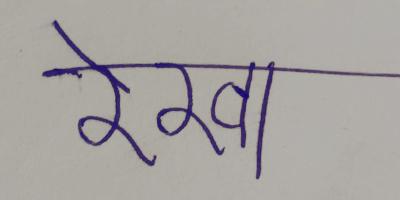 रेखा